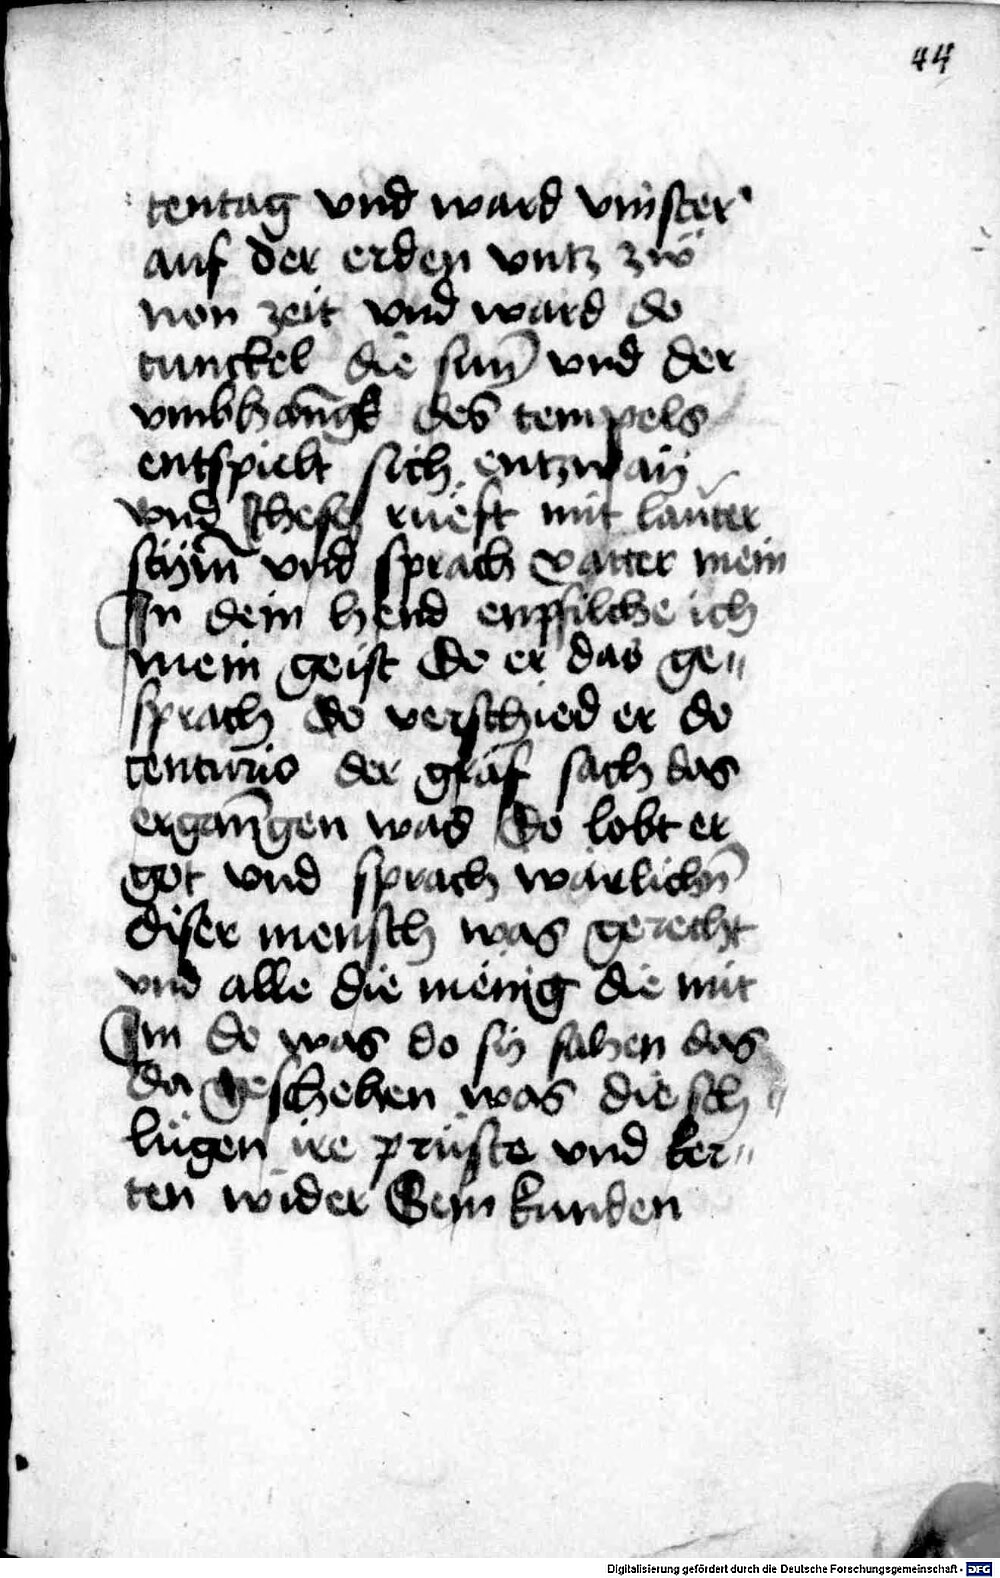 44
tentag vnd ward vinster
auf der erden vntz zw̋
non zeit vnd ward do
tunckel die sun̄ vnd der
vmbhan̄gk des tempels
entspielt sich entzway
vnd Jhesus rueft mit lauter
stym̄ vnd sprach vatter mein
In dein hend enpfilche ich
mein geist do er das ge„
sprach do verschied er do
centurio der graf sach das
ergan̄gen was do lobt er
got vnd sprach wärlichn̄
diser mensch was gerecht
vnd alle die menig die mit
Im do was do sy sahen das
da geschehen was die sch„
lügen ire prüste vnd ker„
ten wider Sein kunden
Digitalisierung gefördert durch die Deutsche Forschungsgemeinschaft - DFG